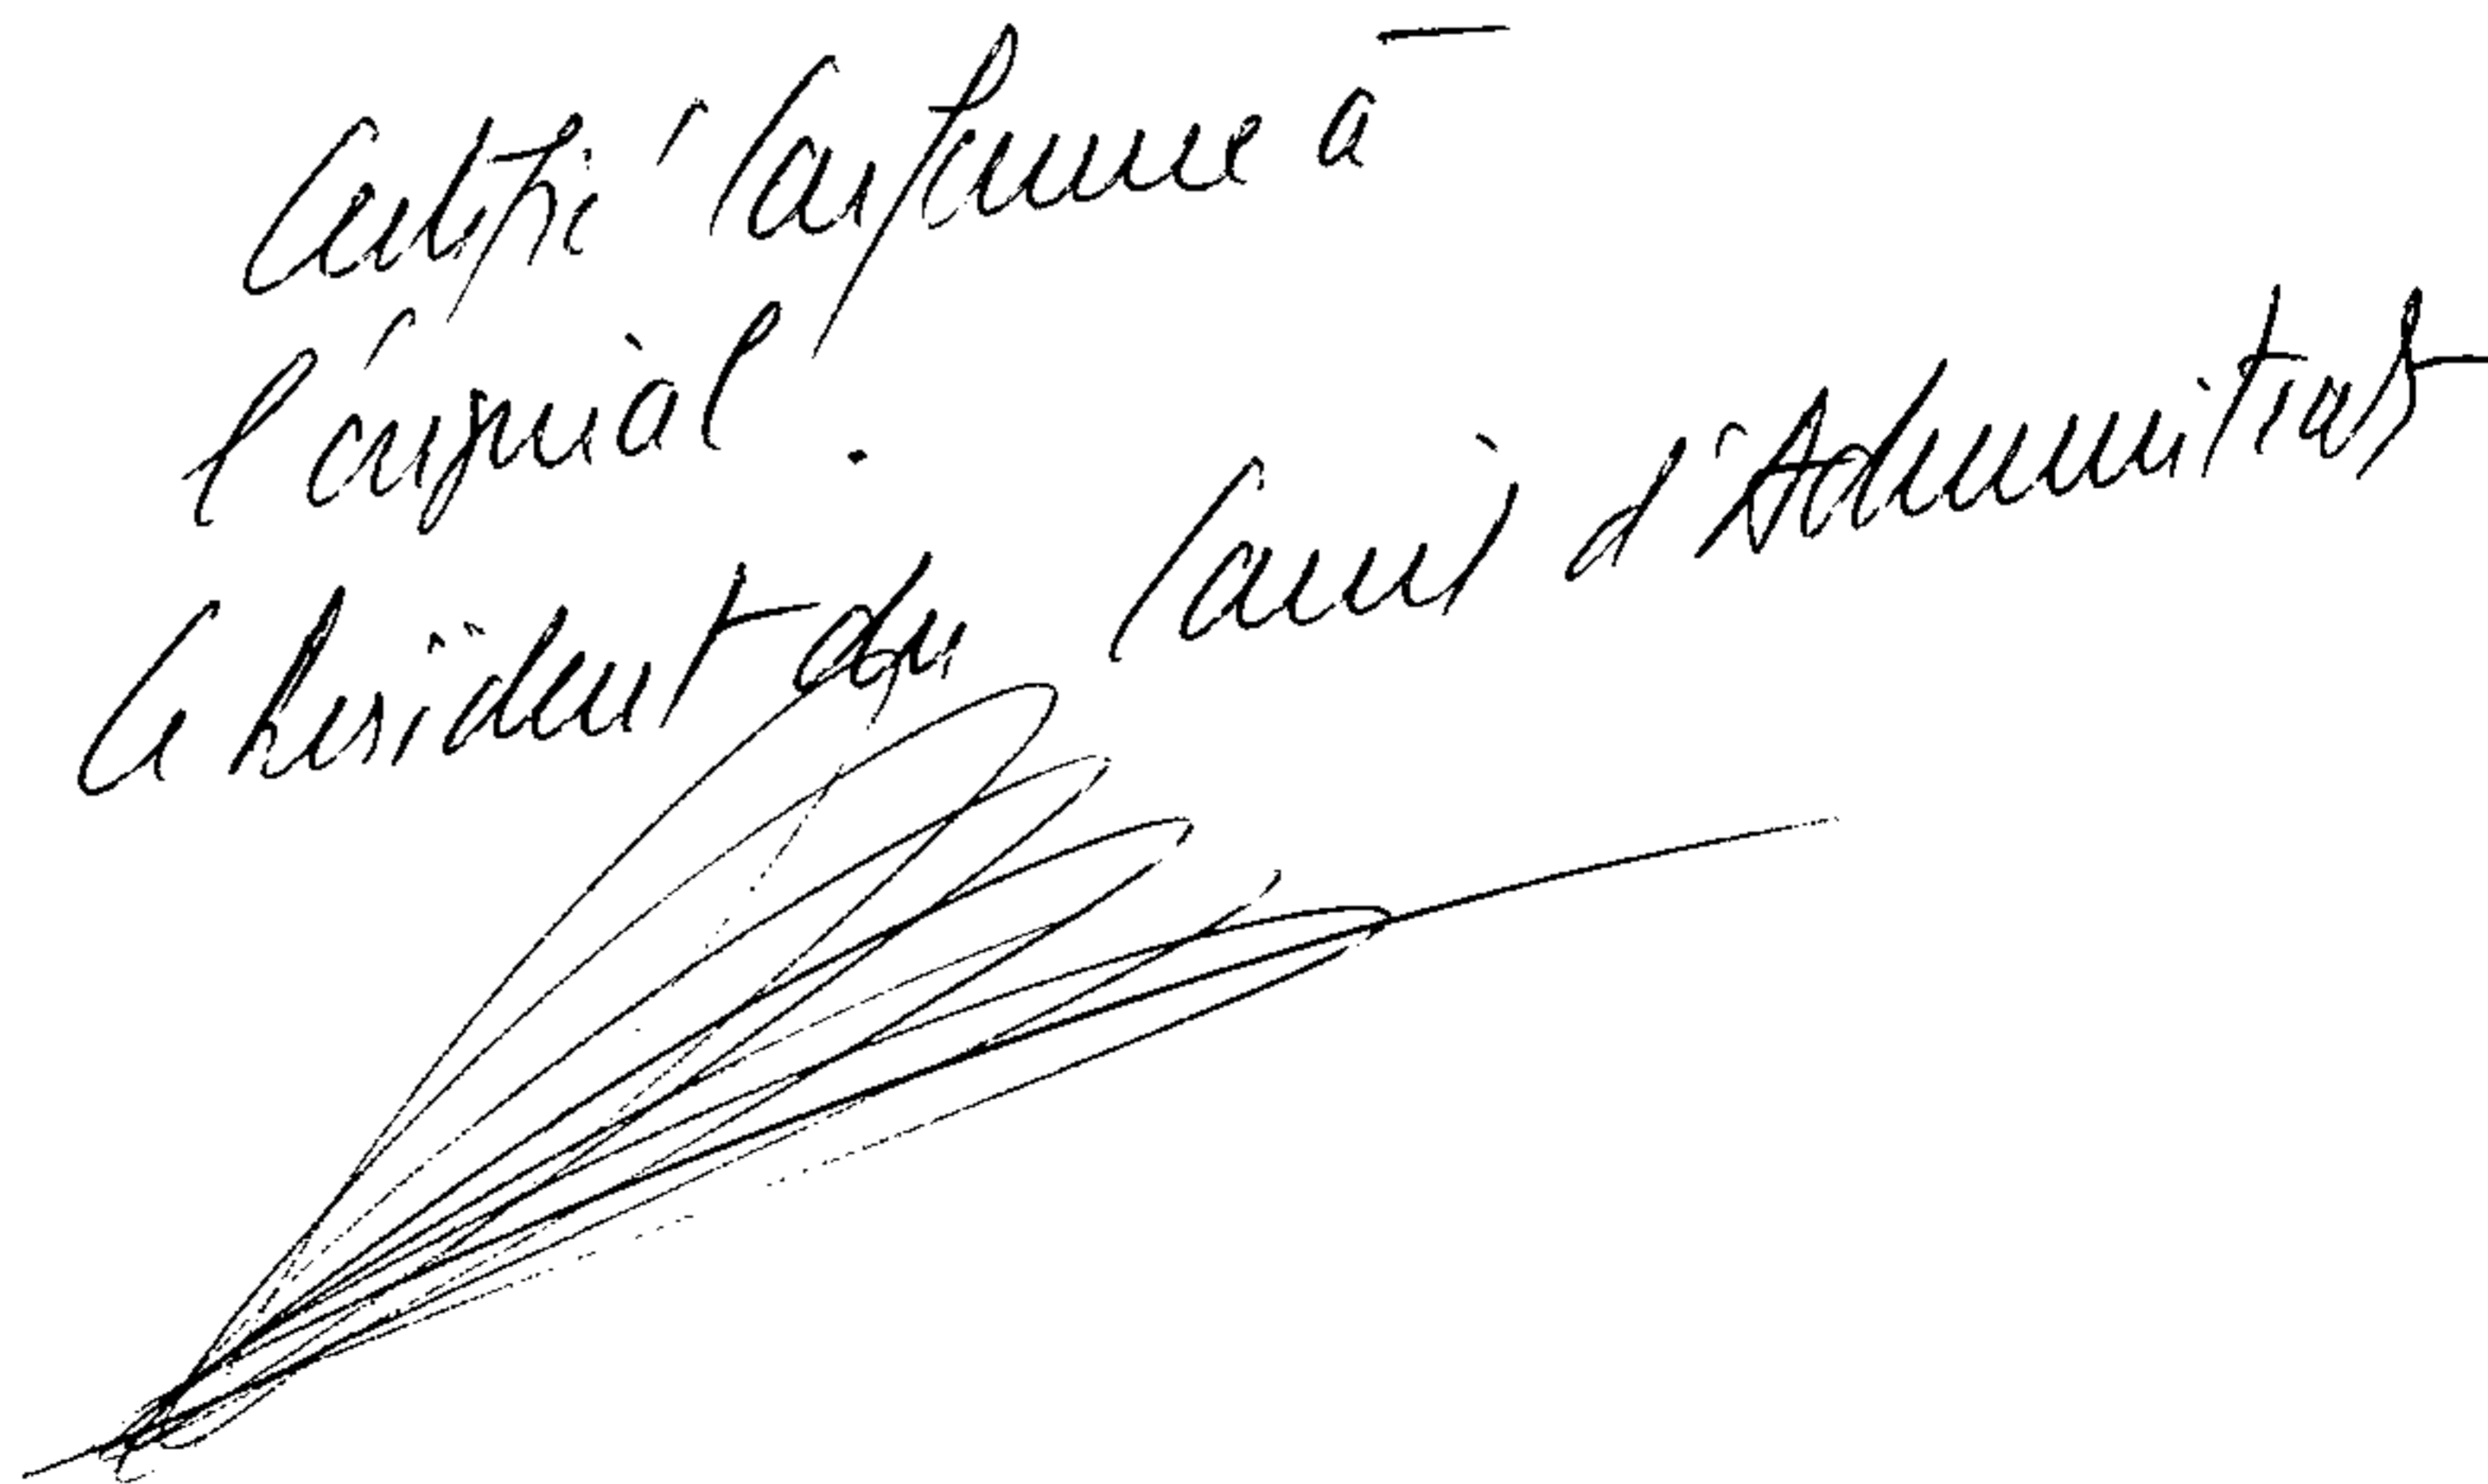 Certifié Conforme à
l'original.
Le Président du Conseil d'Administrat